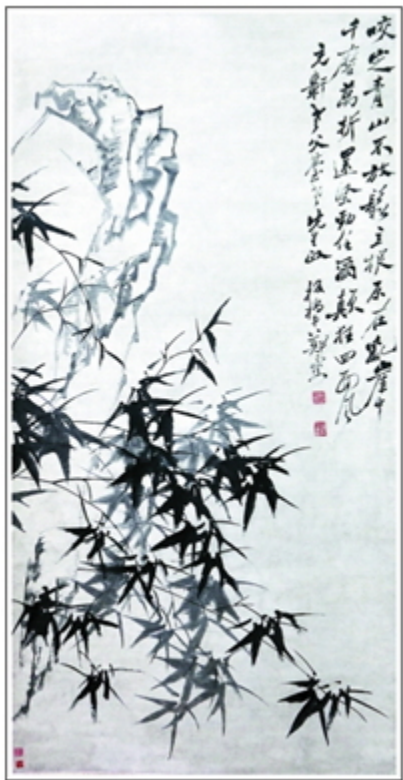 咬定青山不放鬆立根原在亂崖中
千磨萬折還堅勁任爾顛狂四面風
老父臺先生政 板橋鄭燮